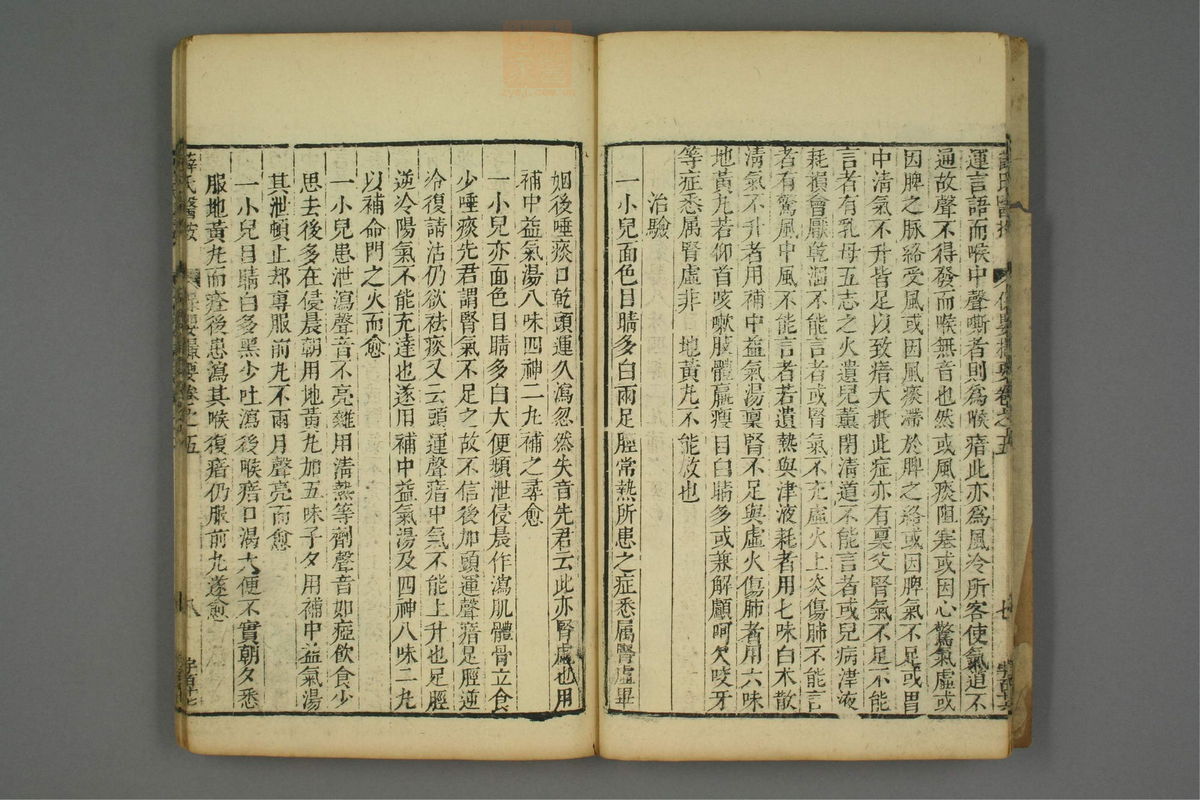 運言語而喉中聲嘶者則為喉瘖此亦為風冷所客使氣道不
通故聲不得發而喉無音也然或風痰阻塞或因心驚氣虛或
因脾之脉絡受風或因風痰滯於脾之絡或因脾氣不足或胃
中清氣不升皆足以致瘖大抵此症亦有稟父腎氣不足不能
言者有乳母五志之火遺兒薰閉清道不能言者或兒病津液
耗損會厭乾涸不能言者或腎氣不充虛火上炎傷肺不能言
者有驚風中風不能言者若遺熱與津液耗者用七味白朮散
清氣不升者用補中益氣湯稟腎不足與虛火傷肺者用六味
地黃丸若仰首咳嗽肢體羸瘦目白睛多或兼解顱呵欠咬牙
等症悉属腎虛非 地黃丸不能救也
治驗
一小兒面色目睛多白兩足脛常熱所患之症悉属腎虛畢
姻後唾痰口乾頭運久瀉忽然失音先君云此亦腎虛也用
補中益氣湯八味四神二丸補之尋愈
一小兒亦面色目睛多白大便頻泄侵晨作瀉肌體骨立食
少唾痰先君謂腎氣不足之故不信後加頭運聲瘖足脛逆
冷復請治仍欲袪痰又云頭運聲瘖中氣不能上升也足脛
逆冷陽氣不能充達也遂用補中益氣湯及四神八味二丸
以補命門之火而愈
一小兒患泄瀉聲音不亮雜用清熱等劑聲音如瘂飲食少
思去後多在侵晨朝用地黃丸加五味子夕用補中益氣湯
其泄頓止却專服前丸不兩月聲亮而愈
一小兒目睛白多黑少吐瀉後喉瘖口渴大便不實朝夕悉
服地黃丸而痊後患瀉其喉復瘖仍服前丸遂愈
薛氏醫按 保嬰撮要卷之五 八